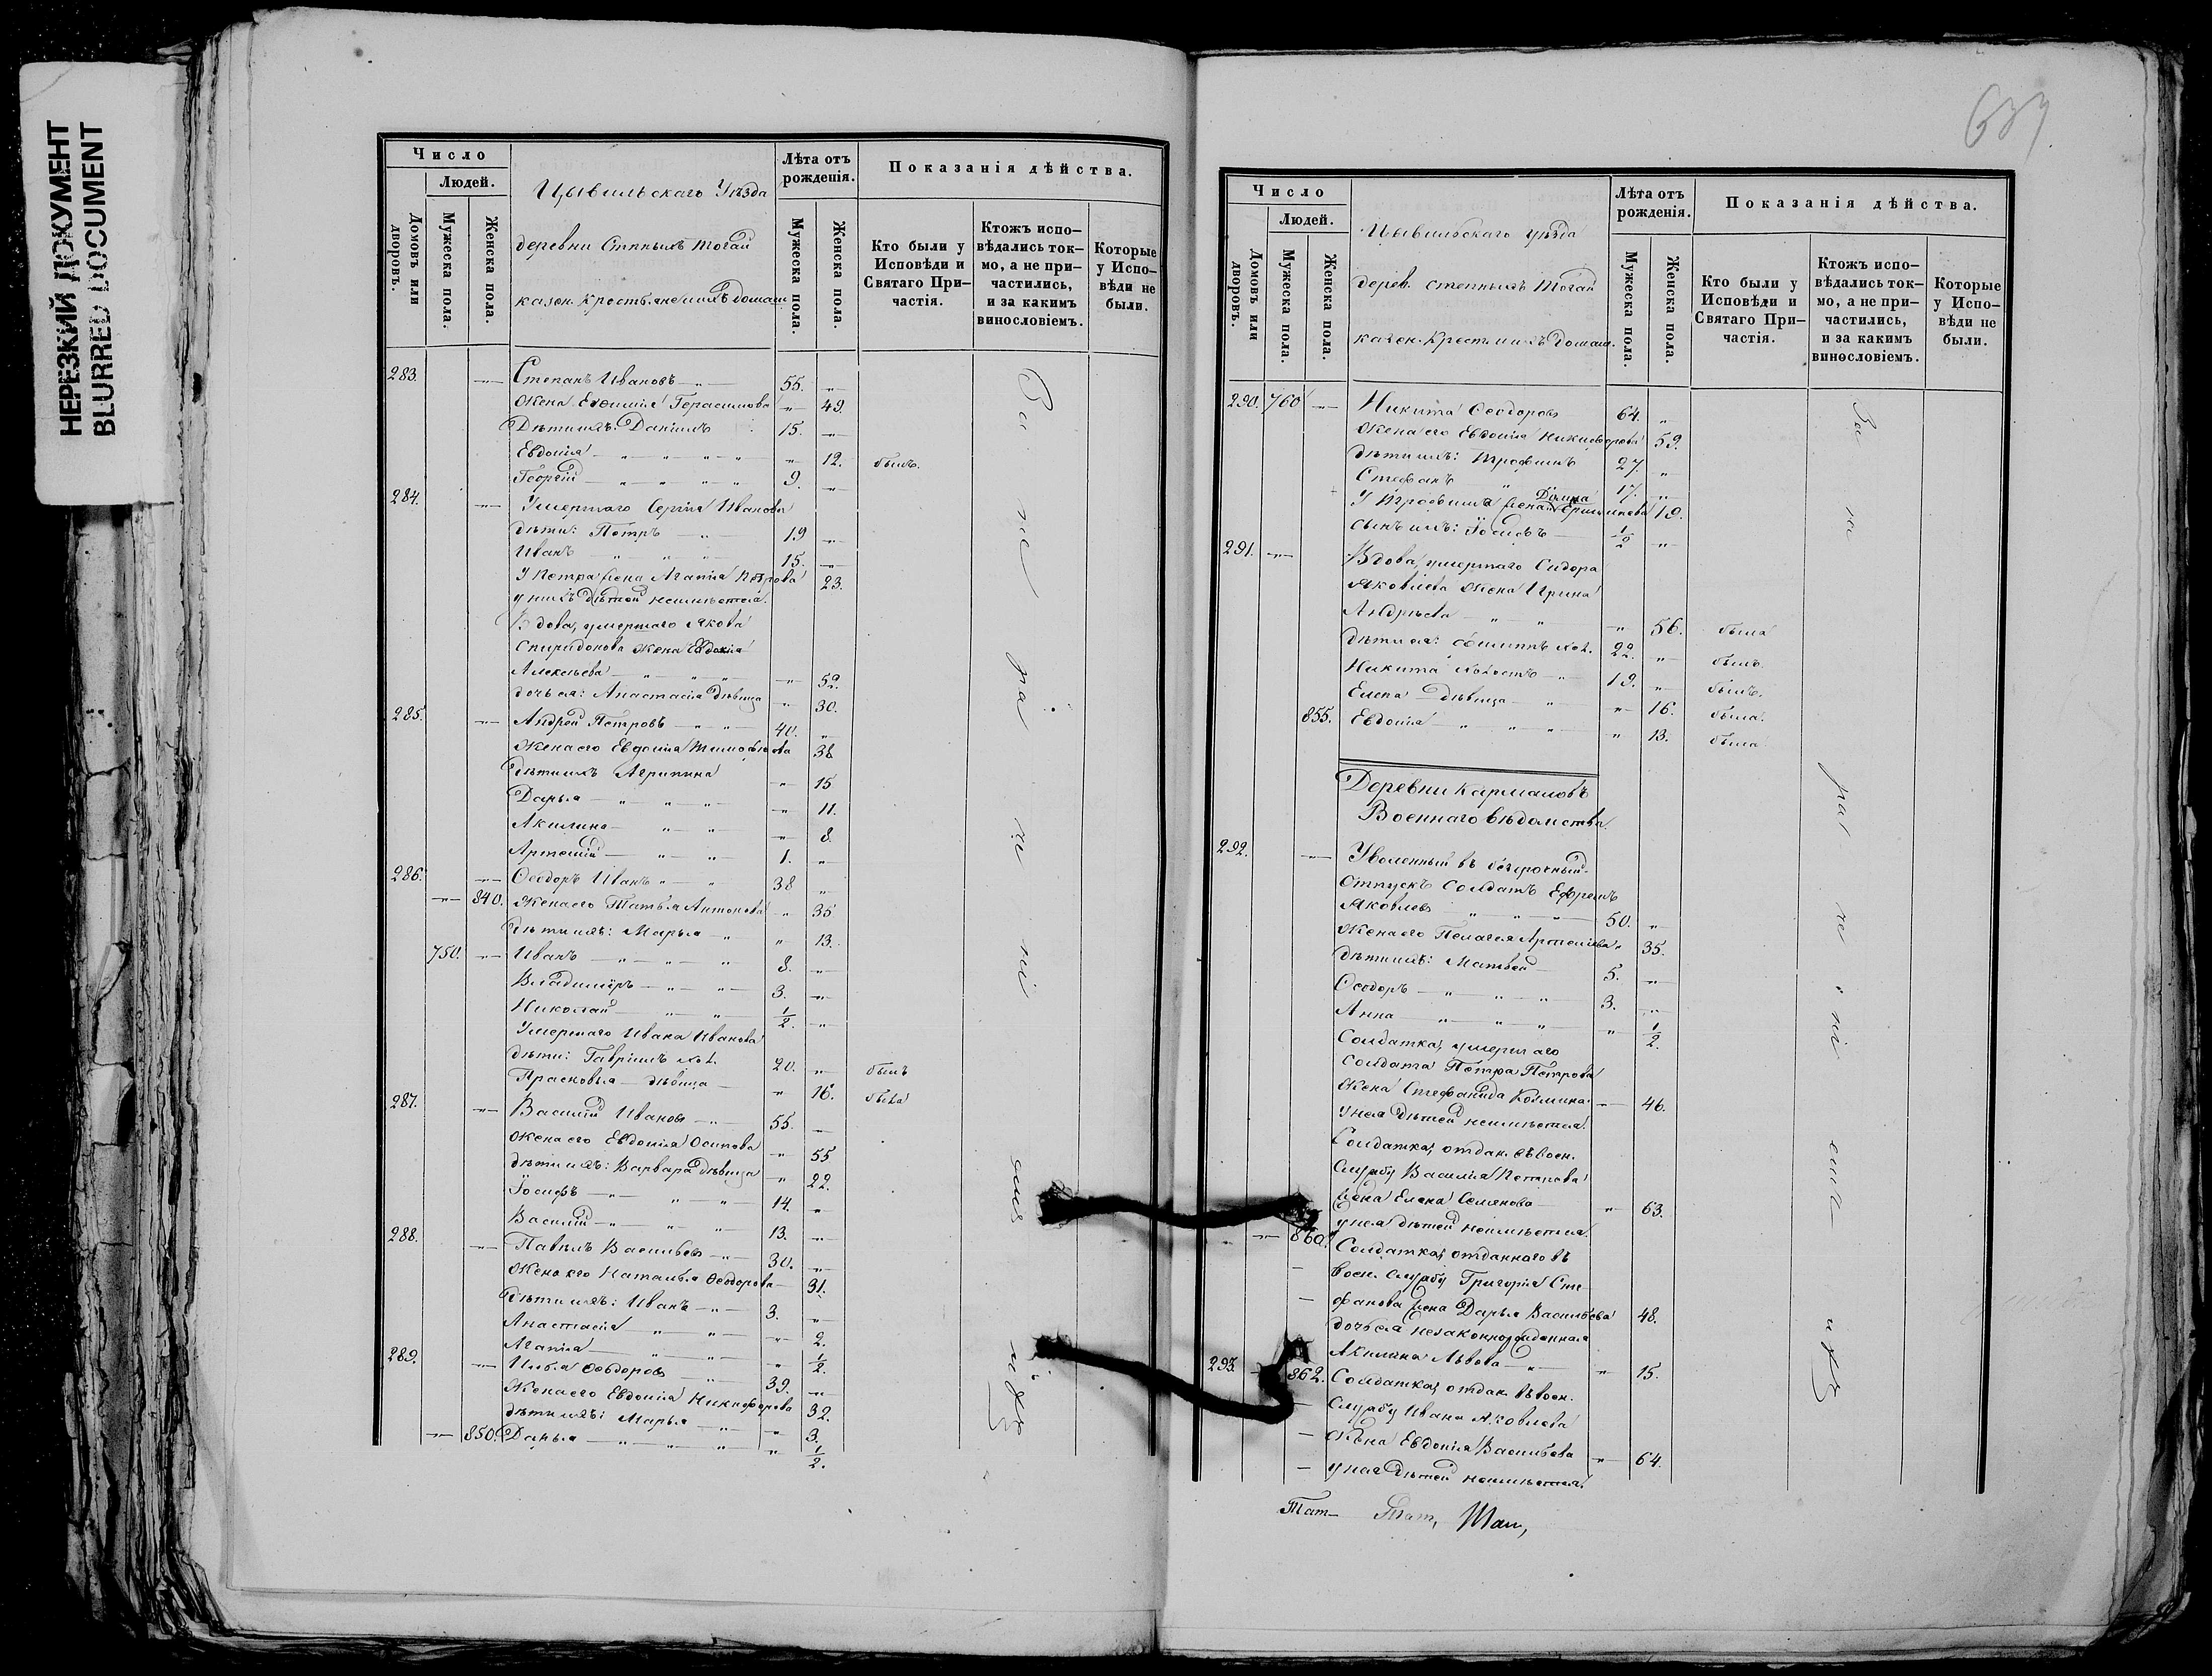 НЕРЕЗКИЙ ДОКУМЕНТ
BLURRED DOCUMENT
Число
Людей.
Домовъ или дворовъ.
Мужеска пола.
Женска пола.
Цывильскаго Уѣзда
деревни Степныхъ Тогай
казен. Крестьяне и ихъ домаш.
Лѣта отъ рожденія.
Мужеска пола.
Женска пола.
Показанія дѣйства.
Кто были у Исповѣди и Святаго Причастія.
Ктожъ исповѣдались токмо, а не причастились, и за какимъ винословіемъ.
Которые у Исповѣди не были.
283. Степанъ Ивановъ 55.
Жена Евфимія Герасимова 49.
Дѣти ихъ: Даніилъ 15.
Евдокія 12. былъ.
Георгій 9.
284. Умершаго Сергія Иванова
дѣти: Петръ 19
Иванъ 15.
У Петра жена Агапія Петрова 23.
у нихъ дѣтей неимѣется.
Вдова, умершаго Якова
Спиридонова жена Евдокія
Алексѣева 52.
дочь ея: Анастасія дѣвица 30.
285. Андрей Петровъ 40.
Жена его Евдокія Тимофѣева 38
дѣти ихъ Агрипина 15
Дарья 11.
Акилина 8.
Артемій 1.
286. Ѳеодоръ Иванъ 38
840. Жена его Татьяна Антонова 35
дѣти ихъ: Марья 13.
750. Иванъ 8.
Владиміръ 3.
Николай 1/2.
Умершаго Ивана Иванова
дѣти: Гавріилъ хол. 20. былъ
Прасковья дѣвица 16. была
287. Василій Ивановъ 55.
Жена его Евдокія Осипова 55
дѣти ихъ: Варвара дѣвица 22.
Іосифъ 14.
Василій 13.
288. Павелъ Васильевъ 30.
Жена его Наталья Ѳеодорова 31.
Дѣти ихъ: Иванъ 3.
Анастасія 2.
Агапія 1/2.
289. Илья Ѳеодоровъ 39.
Жена его Евдокія Никифорова 32.
дѣти ихъ: Марья 3.
850. Дарья 1/2.
За не ра че ні емъ ихъ
Число
Людей.
Домовъ или дворовъ.
Мужеска пола.
Женска пола.
Цывильскаго уѣзда
дерев. Степныхъ Тогай
казен. Крест. и ихъ домаш.
Лѣта отъ рожденія.
Мужеска пола.
Женска пола.
Показанія дѣйства.
Кто были у Исповѣди и Святаго Причастія.
Ктожъ исповѣдались токмо, а не причастились, и за какимъ винословіемъ.
Которые у Исповѣди не были.
290. 760 Никита Ѳеодоровъ 64.
Жена его Евдокія Никифорова 59.
дѣти ихъ: Трофимъ 27.
Стефанъ 17.
У Трофима жена 19.
Сынъ ихъ: Іосифъ 1/2
291. Вдова, умершаго Сидора
Яковлева жена Ирина
Андрѣева 56. была
дѣти ея: Филиппъ хол. 22. былъ.
Никита холостъ 19. былъ.
Елена дѣвица 16. была.
855. Евдокія 13. была
Деревни Кармаловъ
Военнаго вѣдомства
292. Уволенный въ безсрочный
Отпускъ Солдатъ Ефремъ
Яковлевъ 50.
Жена его Пелагея Артемьева 35.
дѣти ихъ: Матвей 5.
Ѳеодоръ 3.
Анна 1/2.
Солдатка, умершаго
солдата Петра Петрова
жена Стефанида Козмина 46.
У нея дѣтей неимѣется.
Солдатка, отдан. въ воен.
Службу Василія Петрова
жена Елена Семенова 63.
у нея дѣтей неимѣется.
860. Солдатка, отданнаго въ
воен. Службу Григорія Сте-
фанова жена Дарья Васильева 48.
дочь ея незаконорожденная
Акилина Львова 15.
293. 862. Солдатка, отдан. въ воен.
Службу Ивана Яковлева
жена Евдокія Васильева 64.
у нея дѣтей неимѣется.
За не ра че ні емъ ихъ